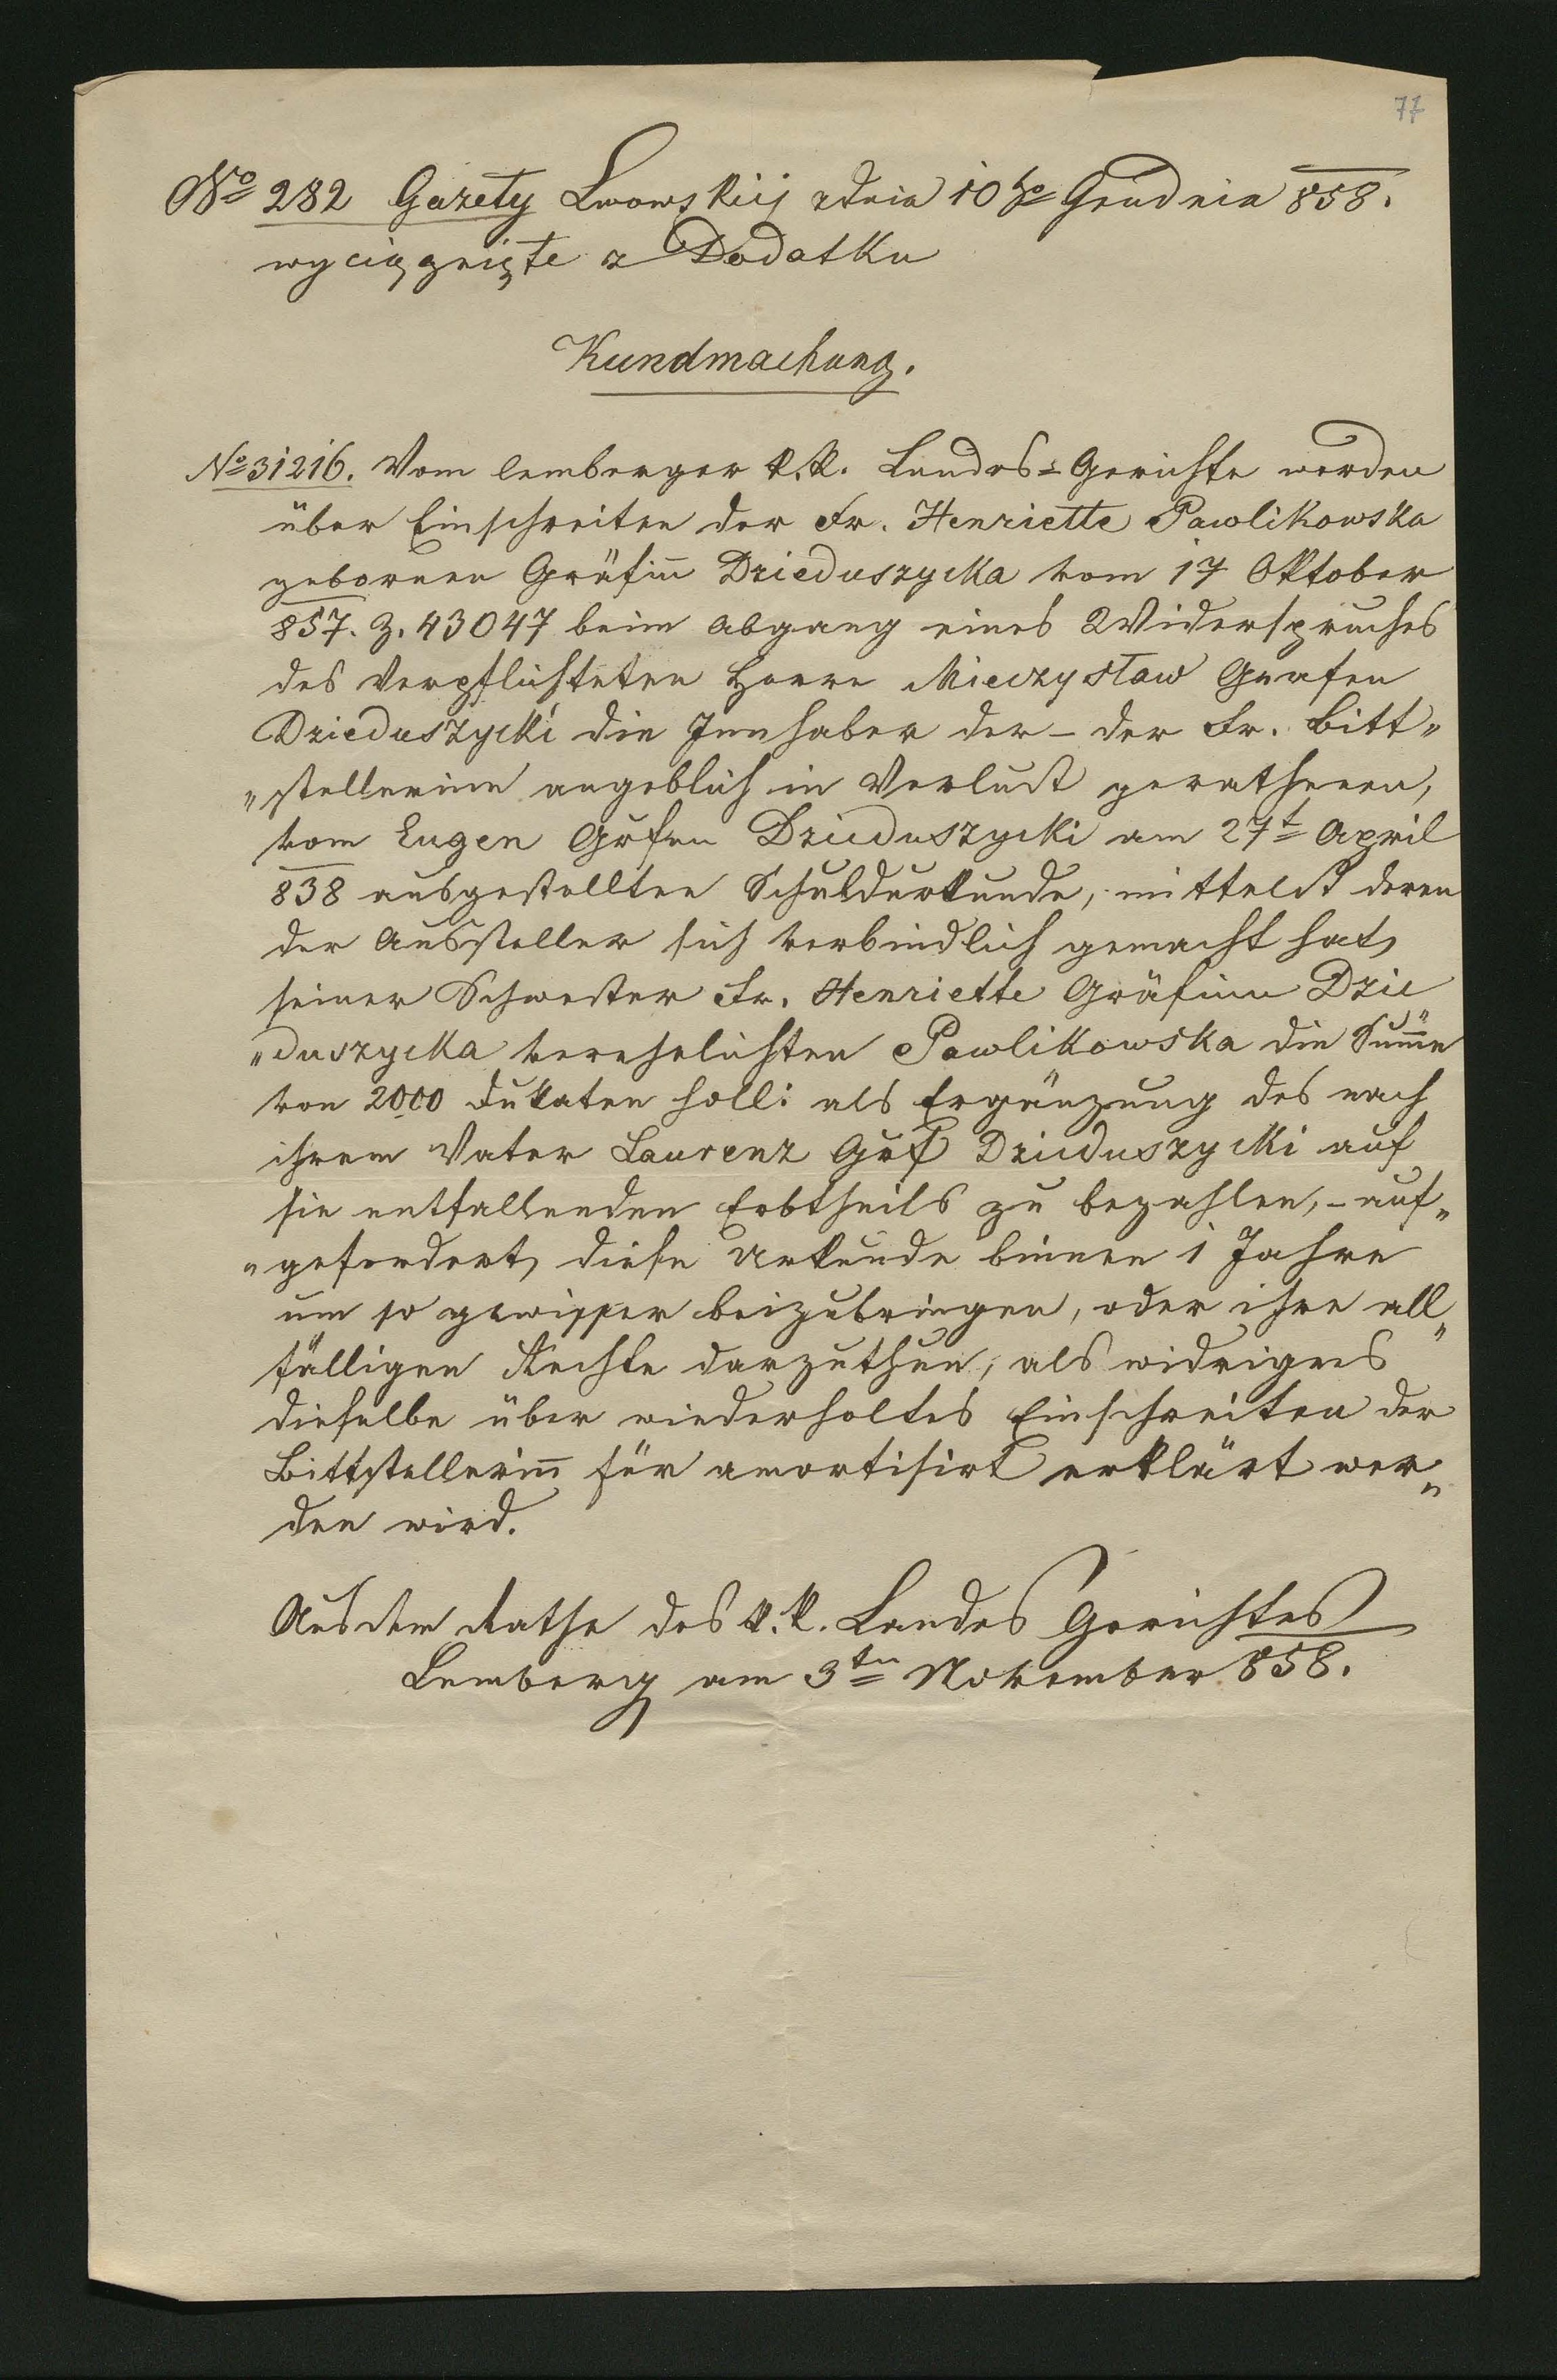 77
No 282 Gazety Lwowskiij zdnia 10go Grudnia 858.
wyciągnięte z Dodatku
Kundmachung.
No 31216. Vom lemberger k. k. Landes=Gerichte werden
über Einschreiten der Fr. Henriette Pawlikowska
gebornen Gräfinn Dzieduszycka vom 17 Oktober
857. Z. 43047 beim Abgang eines Widerspruches
des Verpflichteten Herrn Mieczysław Grafen
Dzieduszycki die Innhaber der – der Fr. Bitt„
„stellerinn angeblich in Verlust gerathenen,
vom Eugen Grafen Dzieduszycki am 27t April
838 ausgestellten Schuldurkunde, mittelst deren
der Aussteller sich verbindlich gemacht hat,
seiner Schwester Fr. Henriette Gräfinn Dzie
„duszycka verehelichten Pawlikowska die Summe
von 2000 Dukaten holl: als Ergänzung des nach
ihrem Vater Laurenz Graf Dzieduszycki auf
sie entfallenden Erbtheils zu bezahlen, – auf„
„gefordert, diese Urkunde binnen 1 Jahre
um so gewisser beizubringen, oder ihre all„
fälligen Rechte darzuthun, als widrigens
dieselbe über wiederholtes Einschreiten der
Bittstellerinn für amortisirt erklärt wer„
den wird.
Aus dem Rathe des k. k. Landes Gerichtes
Lemberg am 3ten November 858.